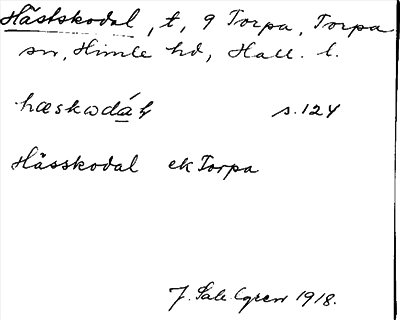 Hästskodal, t, 9 Torpa, Torpa
sn, Himle hd, Hall. l.
s. 124
Hässkodal ek Torpa
J. Sahlgren 1918.